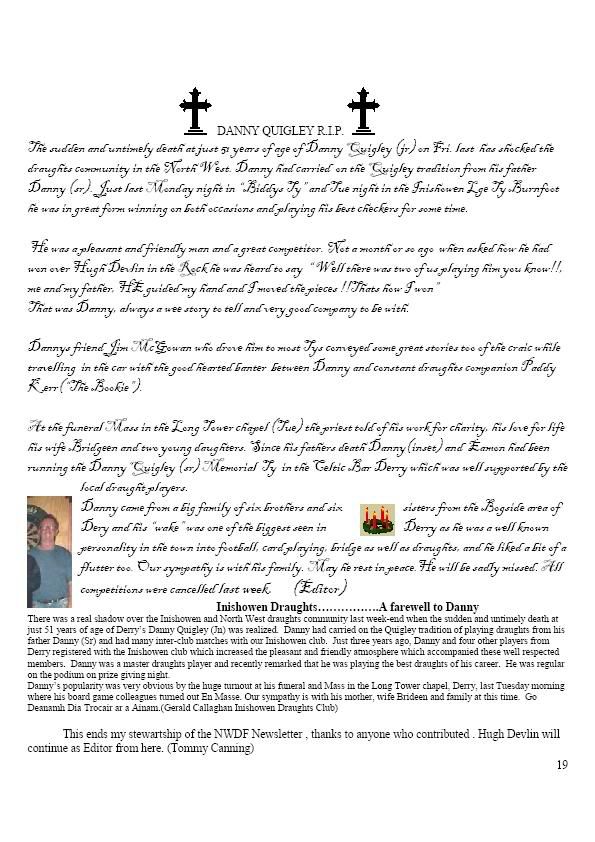 DANNY QUIGLEY R.I.P.
The sudden and untimely death at just 51 years of age of Danny Quigley (jr) on Fri. last has shocked the
draughts community in the North West. Danny had carried on the Quigley tradition from his father
Danny (sr). Just last Monday night in "Biddys Ty" and Tue night in the Inishowen Lge Ty Burnfoot
he was in great form winning on both occasions and playing his best checkers for some time.
He was a pleasant and friendly man and a great competitor. Not a month or so ago when asked how he had
won over Hugh Devlin in the Rock he was heard to say "Well there was two of us playing him you know!!,
me and my father, HE guided my hand and I moved the pieces !!Thats how I won"
That was Danny, always a wee story to tell and very good company to be with.
Dannys friend Jim McGowan who drove him to most Tys conveyed some great stories too of the craic while
travelling in the car with the good hearted banter between Danny and constant draughts companion Paddy
Kerr ("The Bookie").
At the funeral Mass in the Long Tower chapel (Tue) the priest told of his work for charity, his love for life
his wife Bridgeen and two young daughters. Since his fathers death Danny(inset) and Eamon had been
running the Danny Quigley (sr) Memorial Ty in the Celtic Bar Derry which was well supported by the
local draught players.
Danny came from a big family of six brothers and six sisters from the Bogside area of
Dery and his "wake" was one of the biggest seen in Derry as he was a well known
personality in the town into football, card playing, bridge as well as draughts, and he liked a bit of a
flutter too. Our sympathy is with his family. May he rest in peace. He will be sadly missed. All
competitions were cancelled last week. (Editor)
Inishowen Draughts…………….A farewell to Danny
There was a real shadow over the Inishowen and North West draughts community last week-end when the sudden and untimely death at
just 51 years of age of Derry's Danny Quigley (Jn) was realized. Danny had carried on the Quigley tradition of playing draughts from his
father Danny (Sr) and had many inter-club matches with our Inishowen club. Just three years ago, Danny and four other players from
Derry registered with the Inishowen club which increased the pleasant and friendly atmosphere which accompanied these well respected
members. Danny was a master draughts player and recently remarked that he was playing the best draughts of his career. He was regular
on the podium on prize giving night.
Danny's popularity was very obvious by the huge turnout at his funeral and Mass in the Long Tower chapel, Derry, last Tuesday morning
where his board game colleagues turned out En Masse. Our sympathy is with his mother, wife Brideen and family at this time. Go
Deanamh Dia Trocair ar a Ainam.(Gerald Callaghan Inishowen Draughts Club)
This ends my stewartship of the NWDF Newsletter , thanks to anyone who contributed . Hugh Devlin will
continue as Editor from here. (Tommy Canning)
19